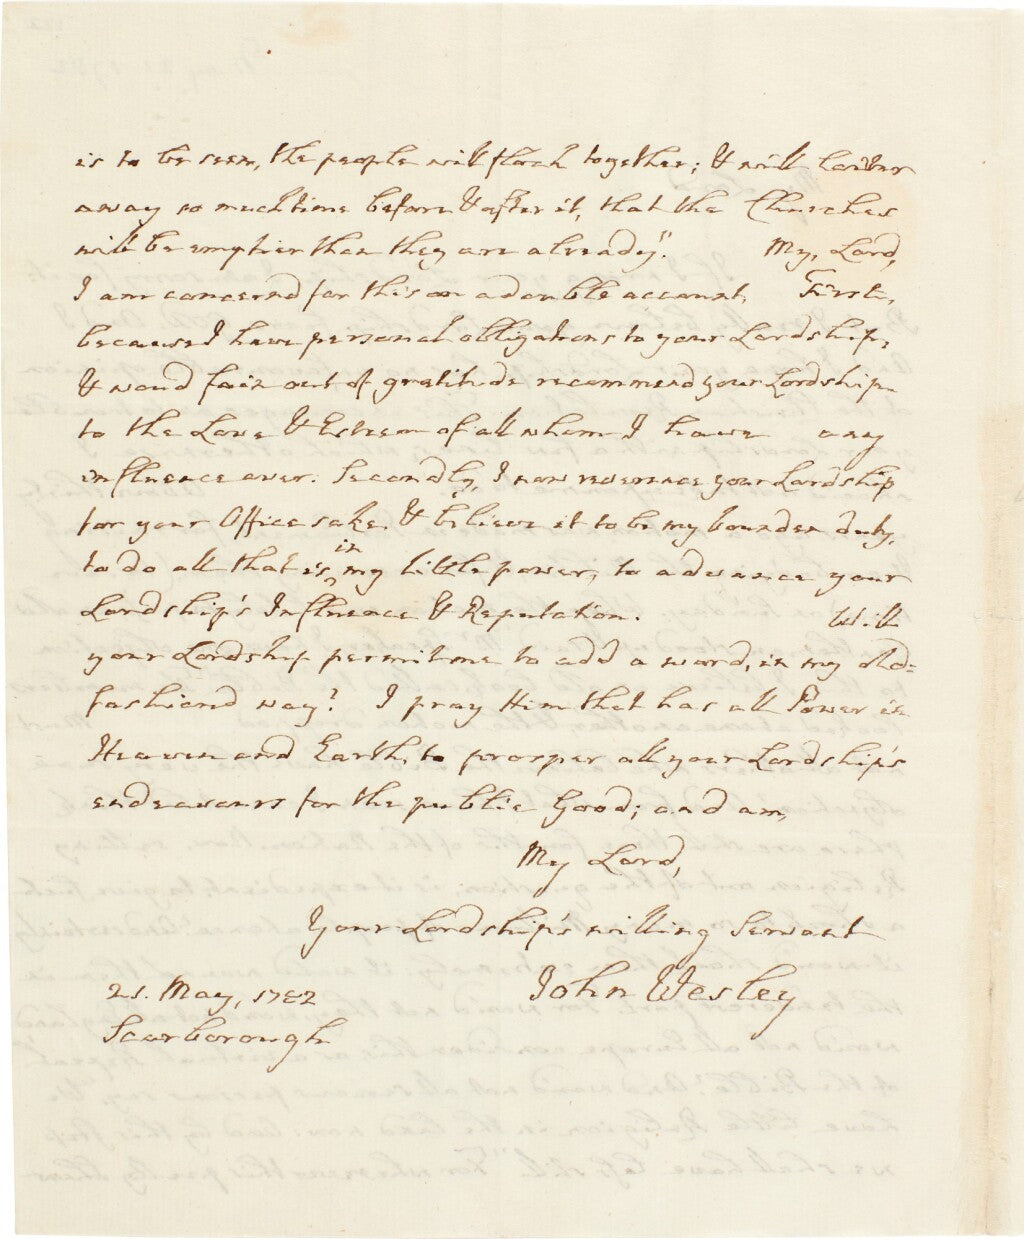 is to be seen, the people will flock together; & will loiter
away so much time before & after it, that the Churches
will be emptier than they are already." My, Lord,
I am concernd for this on a double account. First,
because I have personal obligations to your Lordship,
& woud fain out of gratitude recommend your Lordship
to the Love & Esteem of all whom I have any
influence over. Secondly, I now reverence your Lordship
for your Office sake, & believe it to be my bounden duty,
to do all that is in my little power, to advance your
Lordship's Influence & Reputation. Will
your Lordship permit me to add a word, in my old-
fashiond way? I pray Him that has all Power in
Heaven and Earth, to prosper all your Lordship's
endeavours for the public Good; and am,
My Lord,
Your Lordship's willing Servant
John Wesley
21. May, 1782
Scarborough